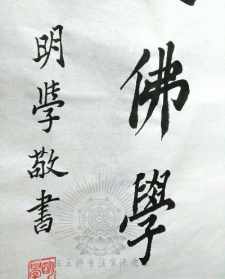 佛學
明學敬書